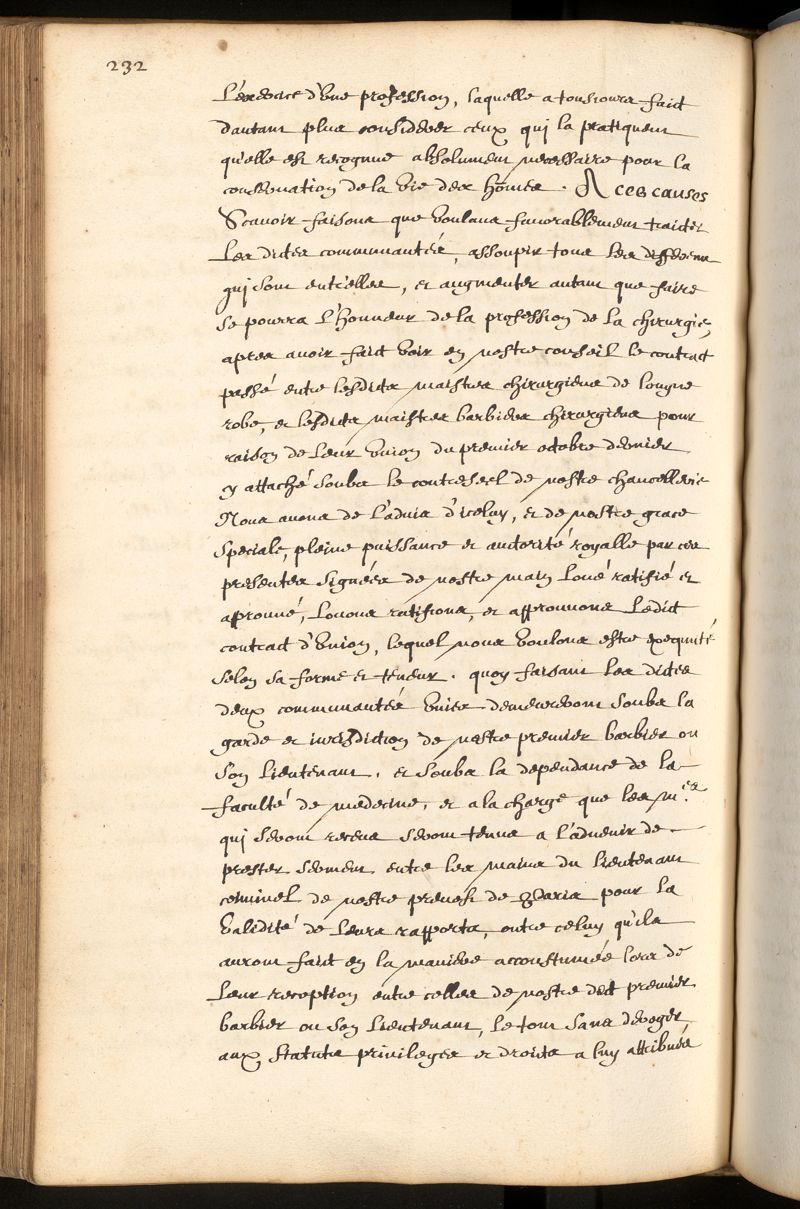 232
L'exercice d'vne profession, laquelle a tousiours faict
dautant plus considerer ceux qui la pratiquent
qu'elle est recognue absolument necessaire pour la
conseruation de la vie des hõmes. A ces causes
Scauoir faisons que voulans fauorablement traicter
les dictes communautés, assoupir tous les differens
qui sont entr'elles, et augmenter autant que faire
se pourra l'honneur de la profession de la chirurgie,
apres auoir faict voir en nostre conseil le contract
passé entre lesdits maistres chirurgiens de longue
robe, et lesdits maistres barbiers chirurgiens pour
raison de leur vnion du premier octobre dernier
cy attaché soubs le contreseel de nostre chancellerie
Nous auons de l'aduis d'iceluy, et de nostre grace
speciale, pleine puissance et autorité royalle par ces
presentes signées de nostre main loué ratifié et
approuué, louons ratifions, et approuuons ledict
contract d'vnion, lequel nous voulons estre exequuté
selon sa forme et teneur. quoy faisant les dictes
deux communautés vnies demeureront soubs la
garde et iurisdiction de nostre premier barbier ou
son lieutenant. et soubs la dependance de la
faculté de medecine, et a la charge que les m.es
qui seront receus seront tenus a l'aduenir de
prester serment entre les mains du lieutenant
criminel de nostre preuost de Paris pour la
validité de leurs rapports, outre celuy qu'ils
auront faict en la maniere accoustumée lors de
leur reception entre celles de nostre dict premier
barbier ou son lieutenant, le tout sans deroger
aux statuts priuileges et droits a luy attribués